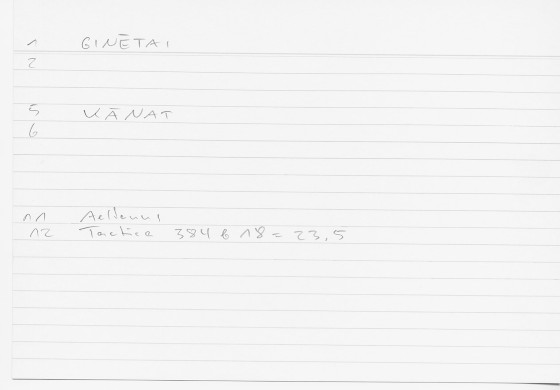 1 GINĒTAI
2
5 KĀNAT
6
11 Aeliani
12 Tactica 384 b 18 = 23,5